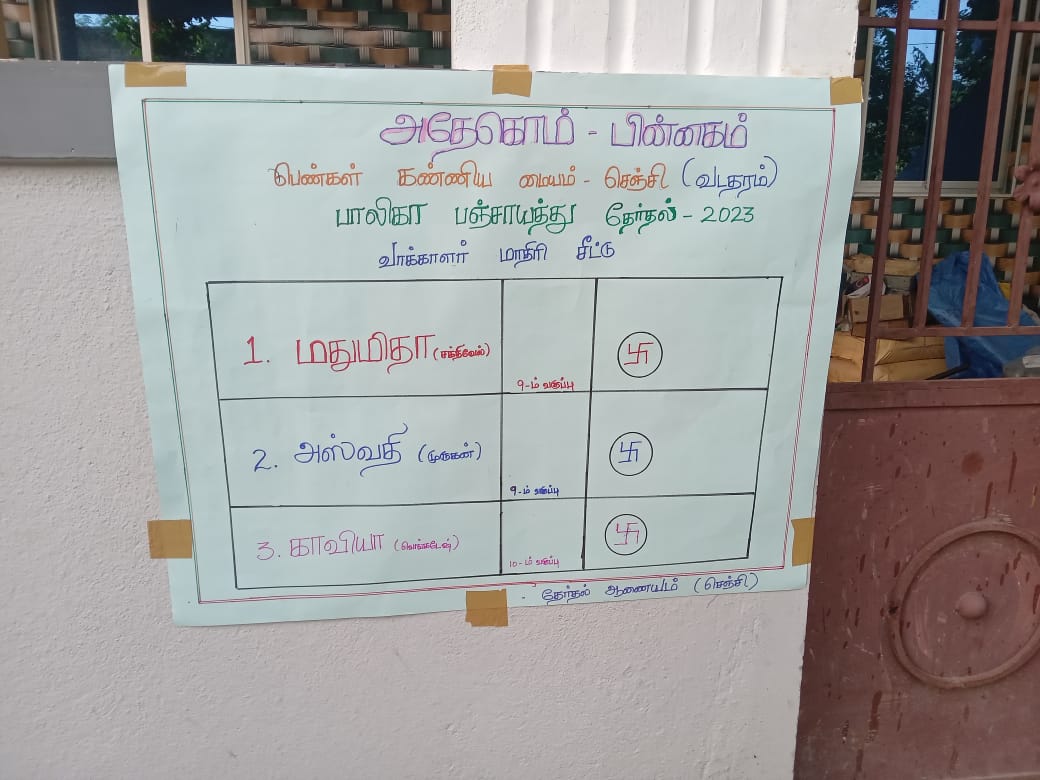 அதேகொம் - பின்னகம்
பெண்கள் கண்ணிய மையம் - செஞ்சி (வடதரம்)
பாலிகா பஞ்சாயத்து தேர்தல் - 2023
வாக்காளர் மாதிரி சீட்டு
1. மதுமிதா (சக்திவேல்) 9-ம் வகுப்பு
2. அஸ்வதி (முருகன்) 9-ம் வகுப்பு
3. காவியா (வெங்கடேஷ்) 10-ம் வகுப்பு
- தேர்தல் ஆணையம் (செஞ்சி)